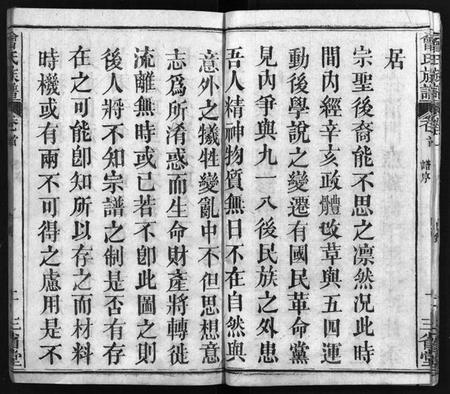 曾氏族譜
卷首
譜序
三省堂
居
宗聖後裔能不思之凜然况此時
間內經辛亥政體改革與五四運
動後學說之變遷有國民革命黨
見內爭與九一八後民族之外患
吾人精神物質無日不在自然與
意外之犧牲變亂中不但思想意
志爲所淆惑而生命財產將轉徙
流離無時或已若不卽此圖之則
後人將不知宗譜之制是否有存
在之可能卽知所以存之而材料
時機或有兩不可得之慮用是不
曾氏族譜
卷首
三省堂